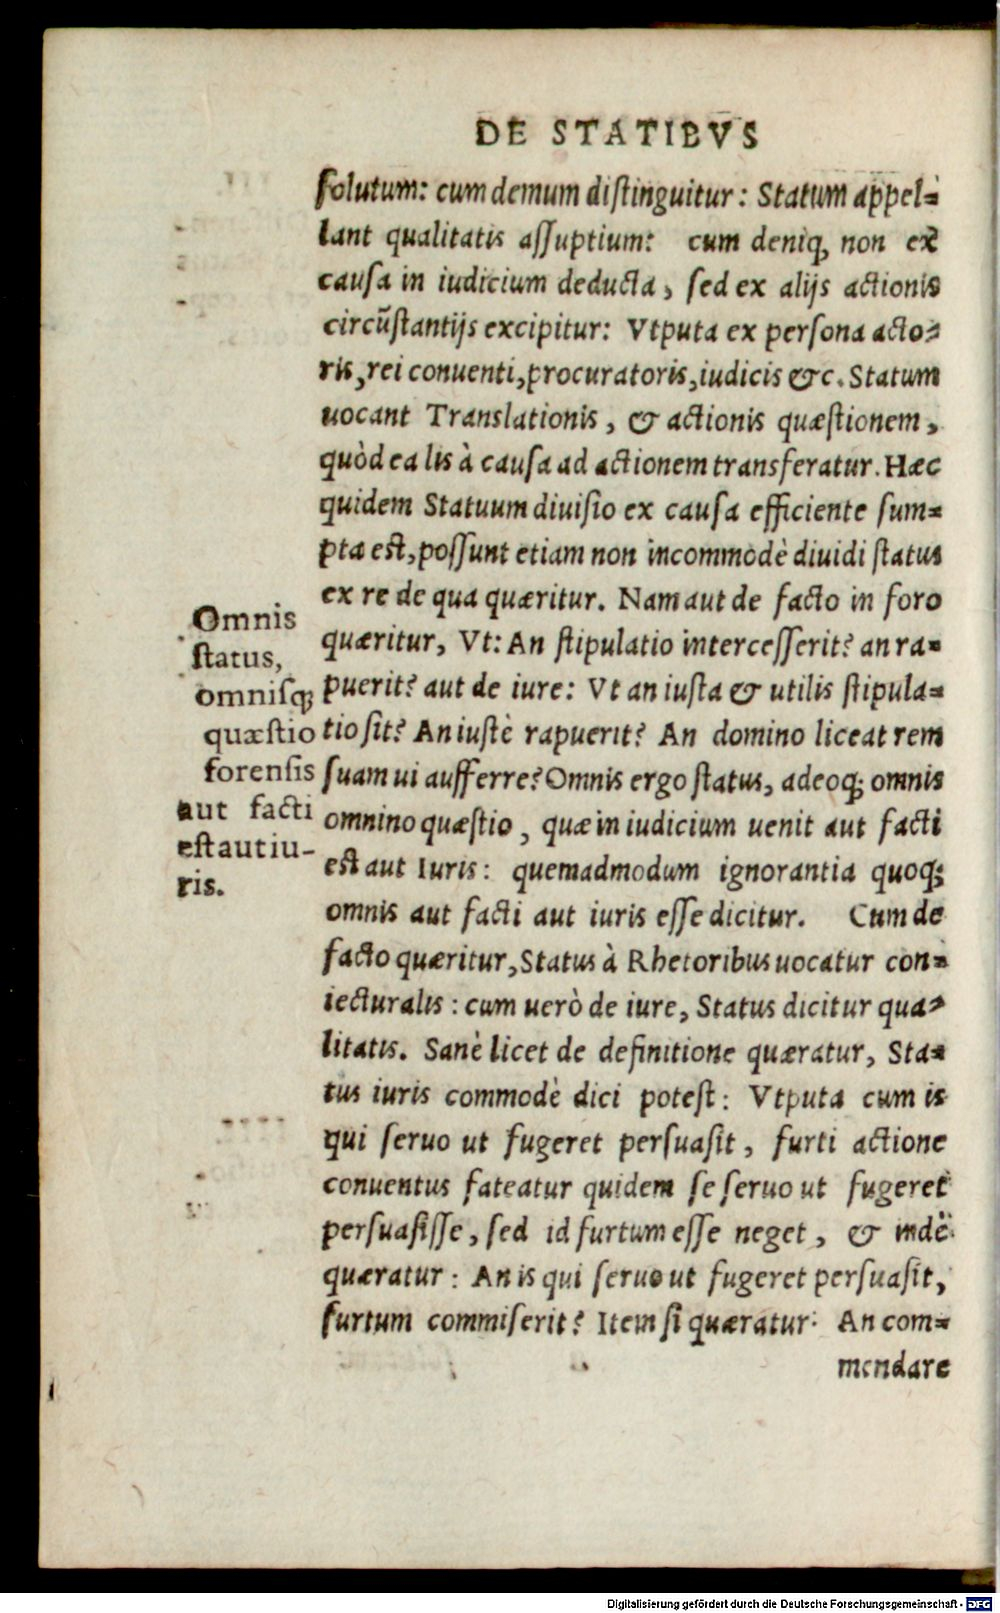 DE STATIBVS
ſolutum: cum demum diſtinguitur: Statum appel=
lant qualitatis aſſuptium: cum deniq; non ex
cauſa in iudicium deducta, ſed ex alijs actionis
circũſtantijs excipitur: Vtputa ex perſona acto=
ris, rei conuenti, procuratoris, iudicis &c. Statum
uocant Translationis, & actionis quæſtionem,
quòd ea lis à cauſa ad actionem transferatur. Hæc
quidem Statuum diuiſio ex cauſa efficiente ſum=
pta eſt, poſſunt etiam non incommodè diuidi ſtatus
ex re de qua quæritur. Nam aut de facto in foro
quæritur, Vt: An ſtipulatio interceſſerit? an ra=
puerit? aut de iure: Vt an iusta & utilis ſtipula=
tio ſit? An iuſtè rapuerit? An domino liceat rem
ſuam ui aufferre? Omnis ergo ſtatus, adeoq; omnis
omnino quæſtio, quæ in iudicium uenit aut facti
eſt aut Iuris: quemadmodum ignorantia quoq;
omnis aut facti aut iuris eſſe dicitur. Cum de
facto quæritur, Status à Rhetoribus uocatur con=
iecturalis: cum uerò de iure, Status dicitur qua=
litatis. Sanè licet de definitione quæratur, Sta=
tus iuris commodè dici poteſt: Vtputa cum is
qui ſeruo ut fugeret perſuaſit, furti actione
conuentus fateatur quidem ſe ſeruo ut fugeret
perſuaſiſſe, ſed id furtum eſſe neget, & inde
quæratur: An is qui ſeruo ut fugeret perſuaſit,
furtum commiſerit? Item ſi quæratur: An com=
mendare
Omnis
ſtatus,
omniſq;
quæſtio
forenſis
aut facti
eſt aut iu-
ris.
Digitalisierung gefördert durch die Deutsche Forschungsgemeinschaft - DFG